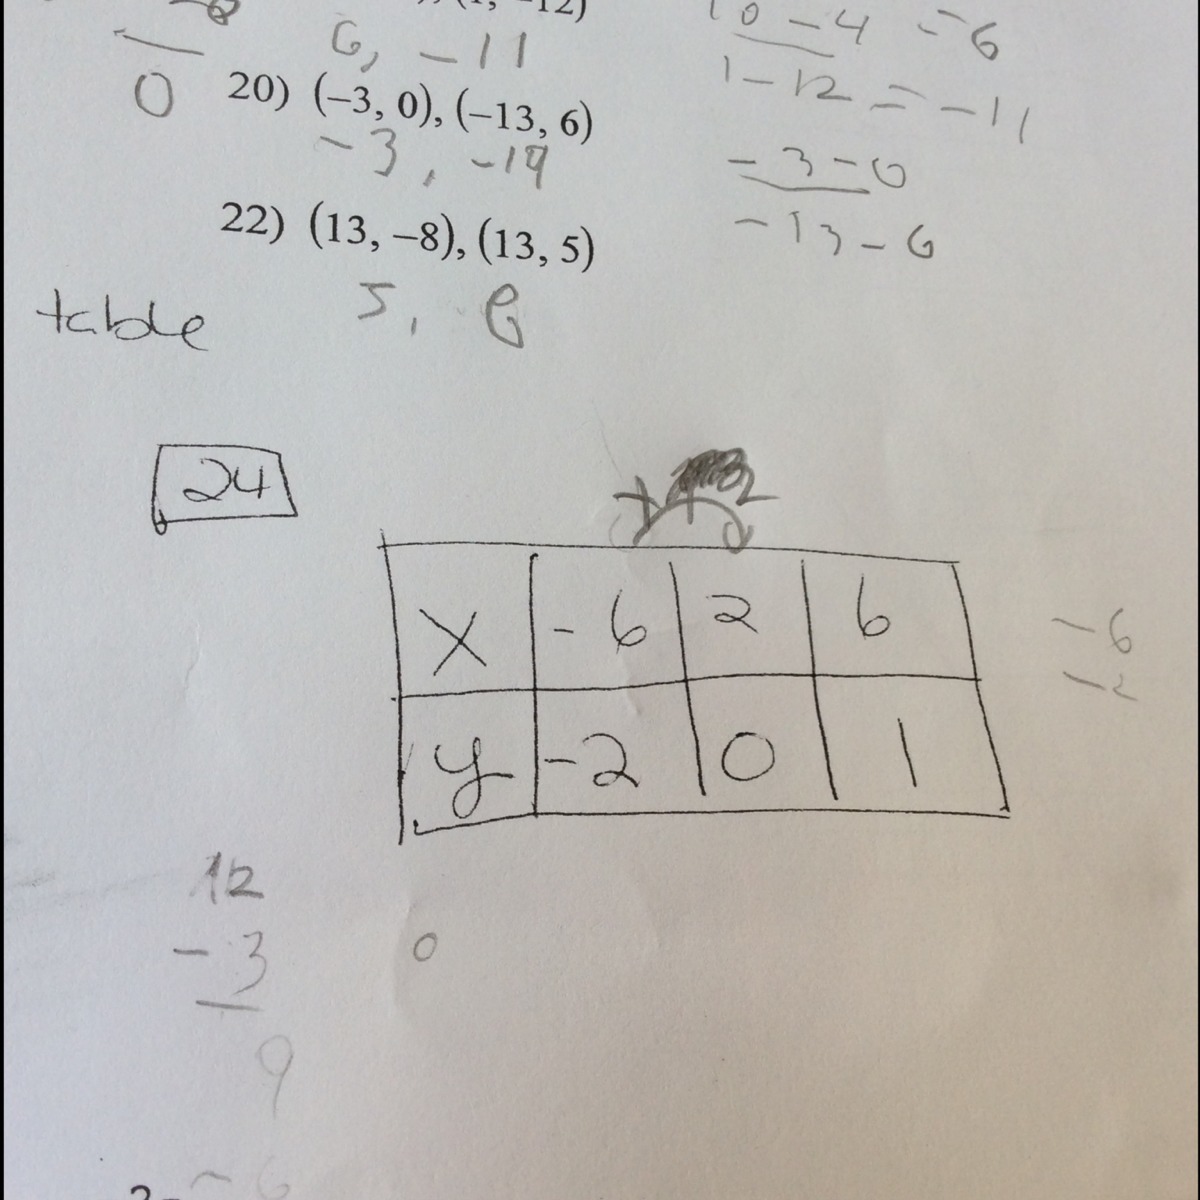 , -12)
10 - 4 = 6
6, -11
1 - 12 = -11
0
20) (−3, 0), (−13, 6)
-3, -19
-3 - 0
-13 - 6
22) (13, −8), (13, 5)
5,
table
24
2
x -6 2 6
y -2 0 1
-6
12
-3
9
0
-6